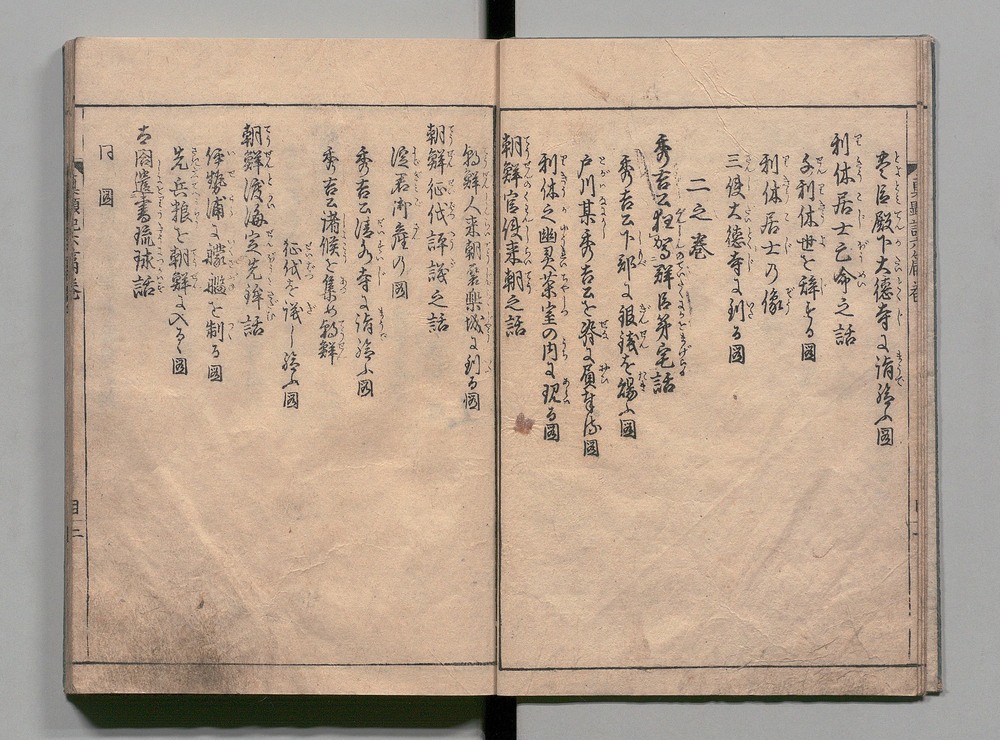 豊臣殿下大徳寺に詣給ふ図
利休居士亡命之話
千利休世を辞する図
利休居士乃像
三使大徳寺に到る図
二之巻
秀吉公枉駕群臣弟宅話
秀吉公下郎に銀銭を賜ふ図
戸川某秀吉公を脊に負奉る図
利休之幽霊茶室の内に現る図
朝鮮官使来朝之話
朝鮮人来朝聚楽城に到る図
朝鮮征伐評議之話
淀君御産の図
秀吉公清水寺に詣給ふ図
秀吉公諸候を集め朝鮮
征伐を議し給ふ図
朝鮮渡海定先鋒話
伊勢浦に艨艟を制る図
先兵粮を朝鮮に入るゝ図
太閤遣書琉球話
同図